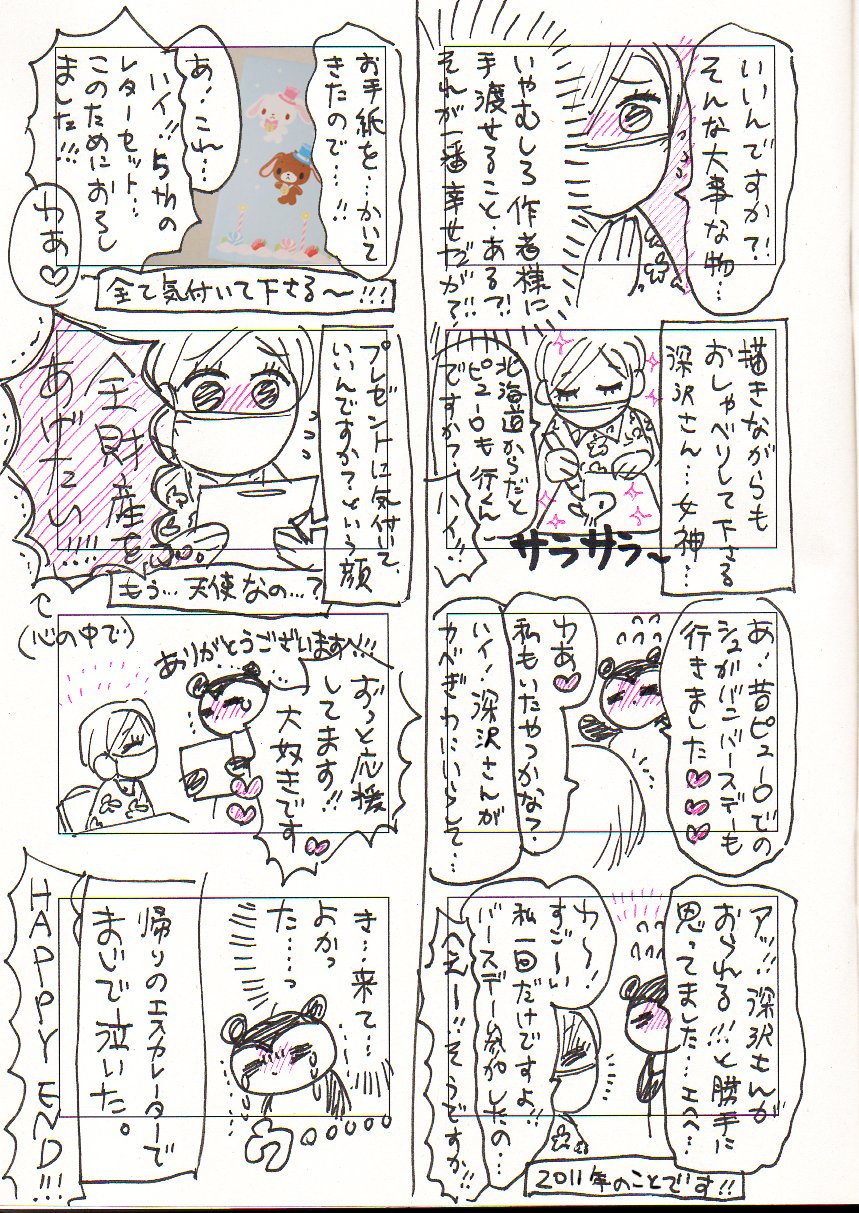 いいんですか?!
そんな大事な物…
いやむしろ作者様に
手渡せること、ある?!
それが一番幸せだが?!!
描きながらも
おしゃべりして下さる
深沢さん…女神…
北海道からだと
ピューロも行くん
ですか?
ハイ!!
サラサラ〜
あ、昔ピューロでの
シュガバニバースデーも
行きました♥♥♥
わあ♥
私もいたやつかな?
ハイ!深沢さんが
かべぎわにいらして…
アッ!!深沢さんが
おられる!!!と勝手に
思ってました…エヘヘ…
わ〜!
すご〜い
私一回だけですよ!!
バースデー参加したの…
へえ〜!!そうですか!!
2011年のことです!!
お手紙を…かいて
きたので…!!
あ、これ…
ハイ!!ちゃんの
レターセット…
このためにおろし
ました!!!
わあ♡
全て気付いて下さる〜!!!
プレゼントに気付いて、
いいんですか?という顔
全財産を
あげたい!!!!
(心の中で)
もう…天使なの…?
ありがとうございます〜!!!
ずっと応援
してます!!
大好きです♥
き…来て…
よかっ
た……っ
ウ。。。。。
帰りのエスカレーターで
まじで泣いた。
HAPPY END!!!